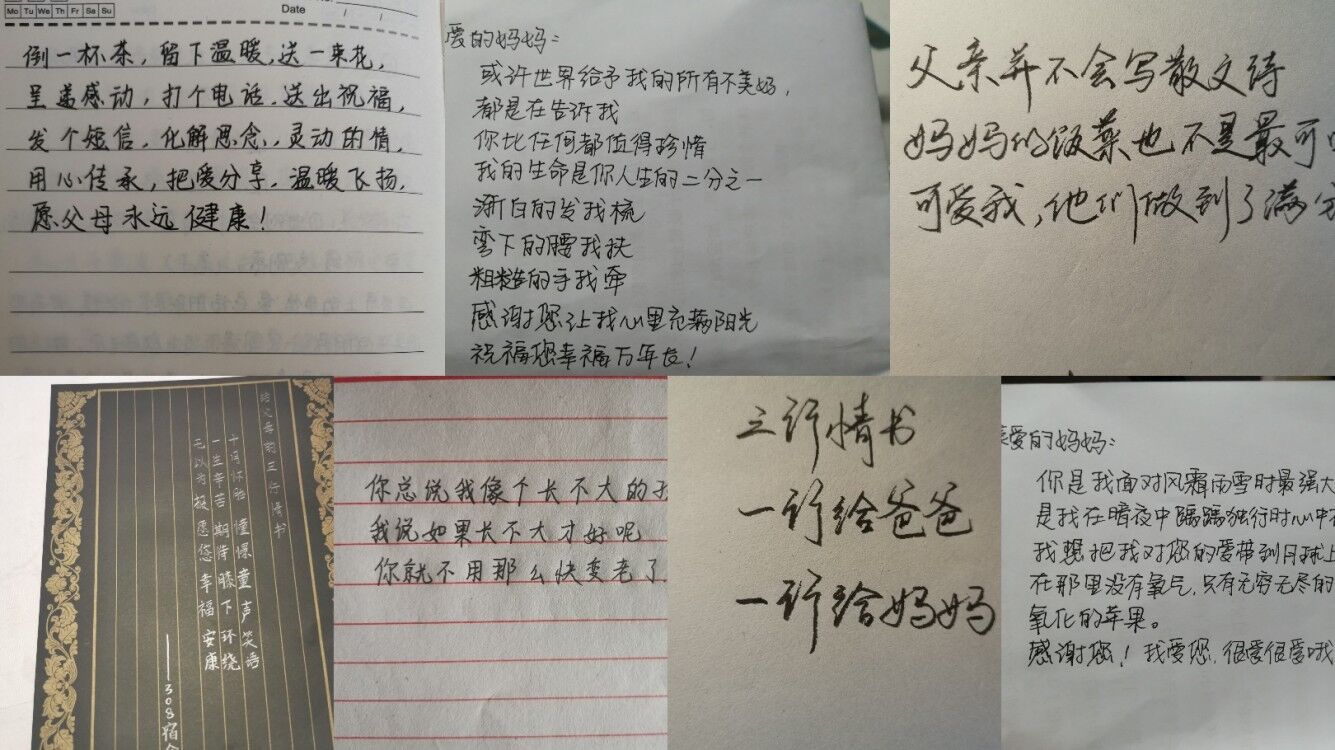 Mo Tu We Th Fr Sa Su
Date / /
倒一杯茶，留下温暖，送一束花，
呈递感动，打个电话，送出祝福，
发个短信，化解思念，灵动的情，
用心传承，把爱分享，温暖飞扬，
愿父母永远健康！
爱的妈妈：
或许世界给予我的所有不美好，
都是在告诉我
你比任何都值得珍惜
我的生命是你人生的二分之一
渐白的发我梳
弯下的腰我扶
粗糙的手我牵
感谢您让我心里充满阳光
祝福您幸福万年长！
父亲并不会写散文诗
妈妈的饭菜也不是最可
可爱我，他们做到了满分
给父母的三行情书
十月怀胎 憧憬童声笑语
一生辛苦 期待膝下环绕
无以为报 愿您幸福安康
——308宿
你总说我像个长不大的孩
我说如果长不大才好呢
你就不用那么快变老了
三行情书
一行给爸爸
一行给妈妈
亲爱的妈妈：
你是我面对风霜雨雪时最强大
是我在暗夜中踽踽独行时心中
我想把我对您的爱带到月球上
在那里没有氧气，只有无穷无尽的
氧化的苹果。
感谢您！我爱您，很爱很爱哦